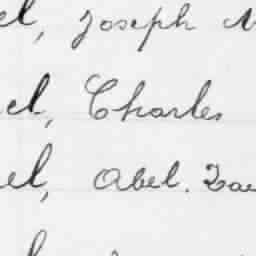 el, Joseph
el, Charles
el, Abel.